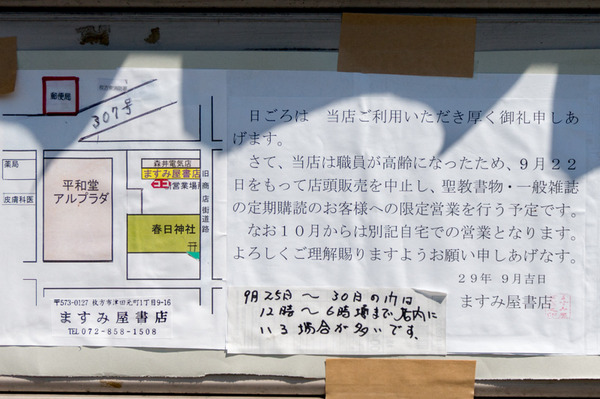 郵便局
307号
薬局
皮膚科医
平和堂
アルプラダ
森井電気店
ますみ屋書店
ココ
営業場所
旧商店街道路
春日神社
〒573-0127 枚方市津田元町1丁目9-16
ますみ屋書店
TEL 072-858-1508
日ごろは 当店ご利用いただき厚く御礼申しあ
げます。
さて、当店は職員が高齢になったため、9月22
日をもって店頭販売を中止し、聖教書物・一般雑誌
の定期購読のお客様への限定営業を行う予定です。
なお10月からは別記自宅での営業となります。
よろしくご理解賜りますようお願い申しあげなす。
29年 9月吉日
ますみ屋書店
9月25日〜30日の内は
12時〜6時頃まで店内に
いる場合が多いです。